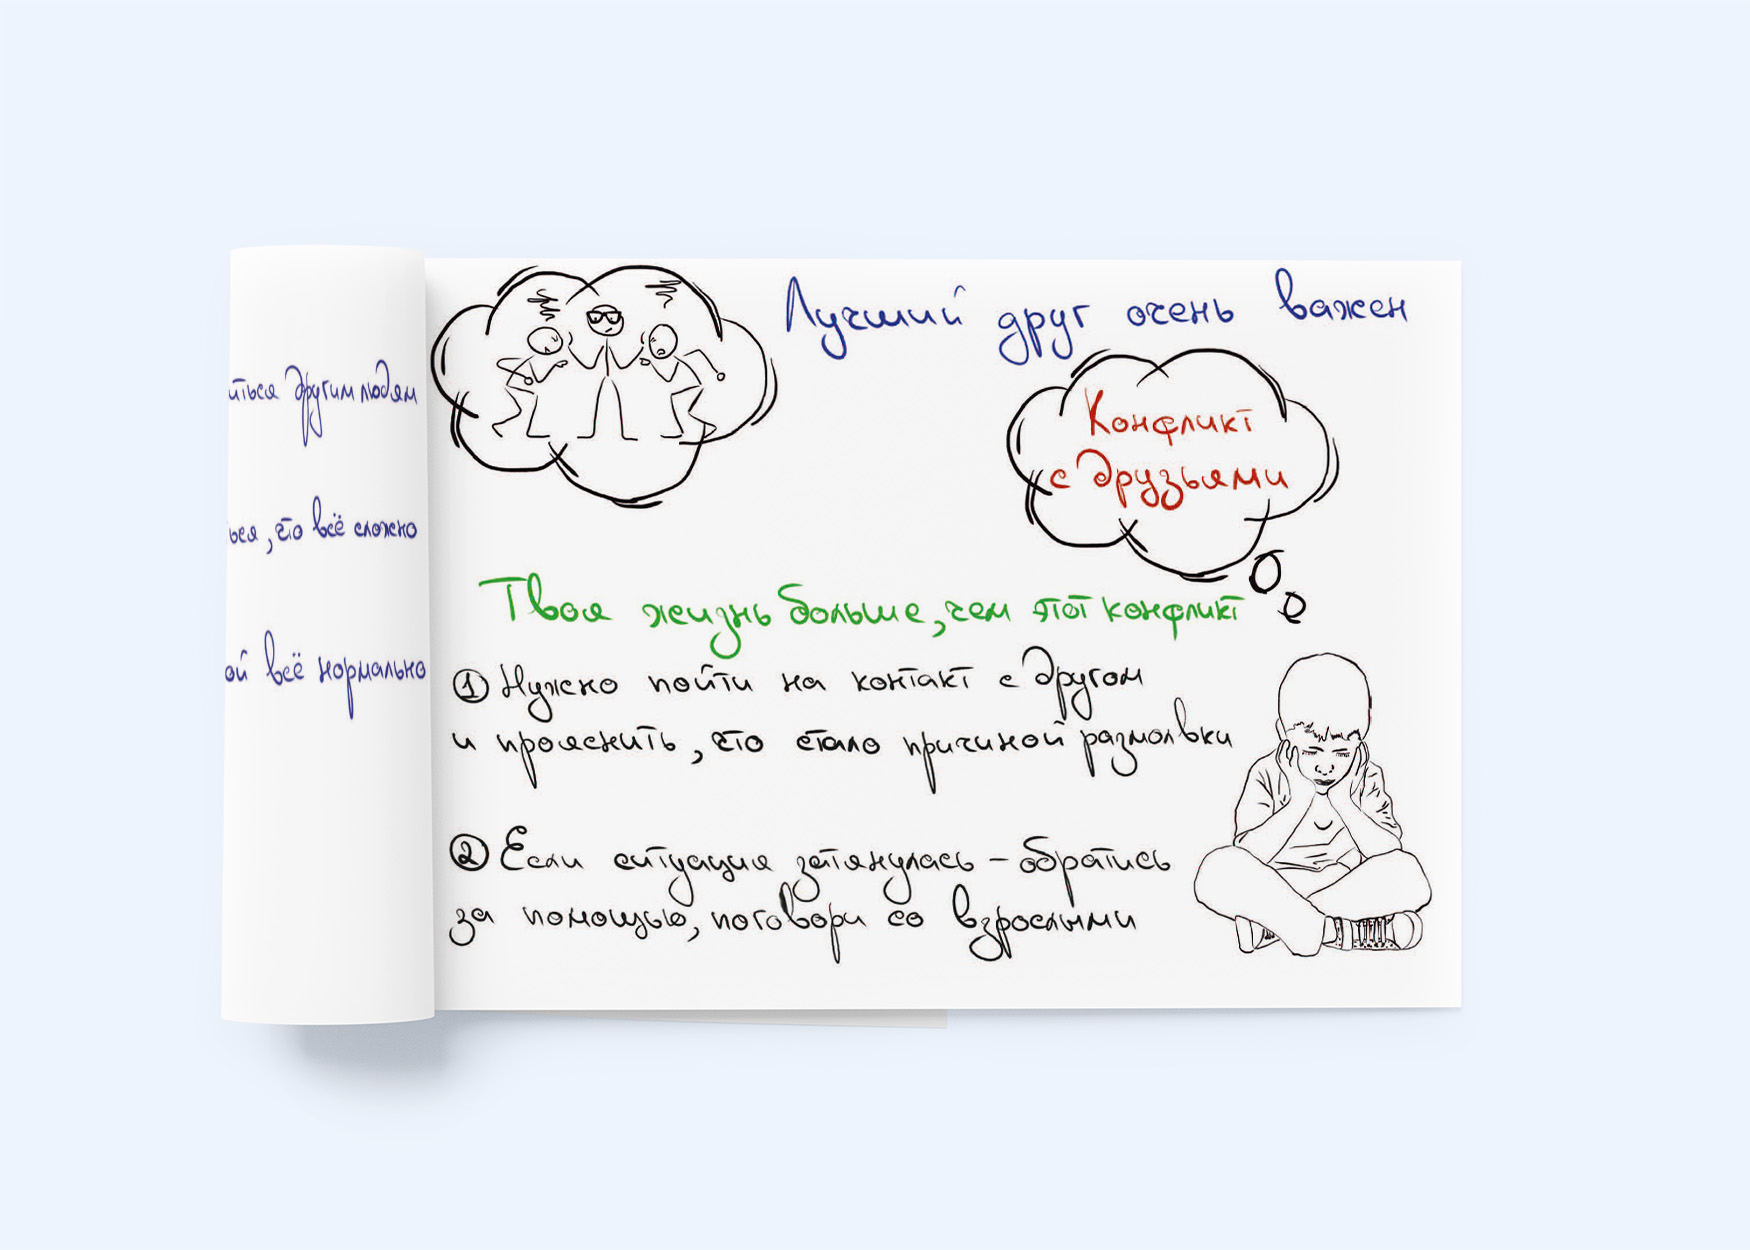 другим людям
, что всё сложно
всё нормально
Лучший друг очень важен
Конфликт
с друзьями
Твоя жизнь больше, чем этот конфликт
1 Нужно пойти на контакт с другом
и прояснить, что стало причиной размолвки
2 Если ситуация затянулась – обратись
за помощью, поговори со взрослыми